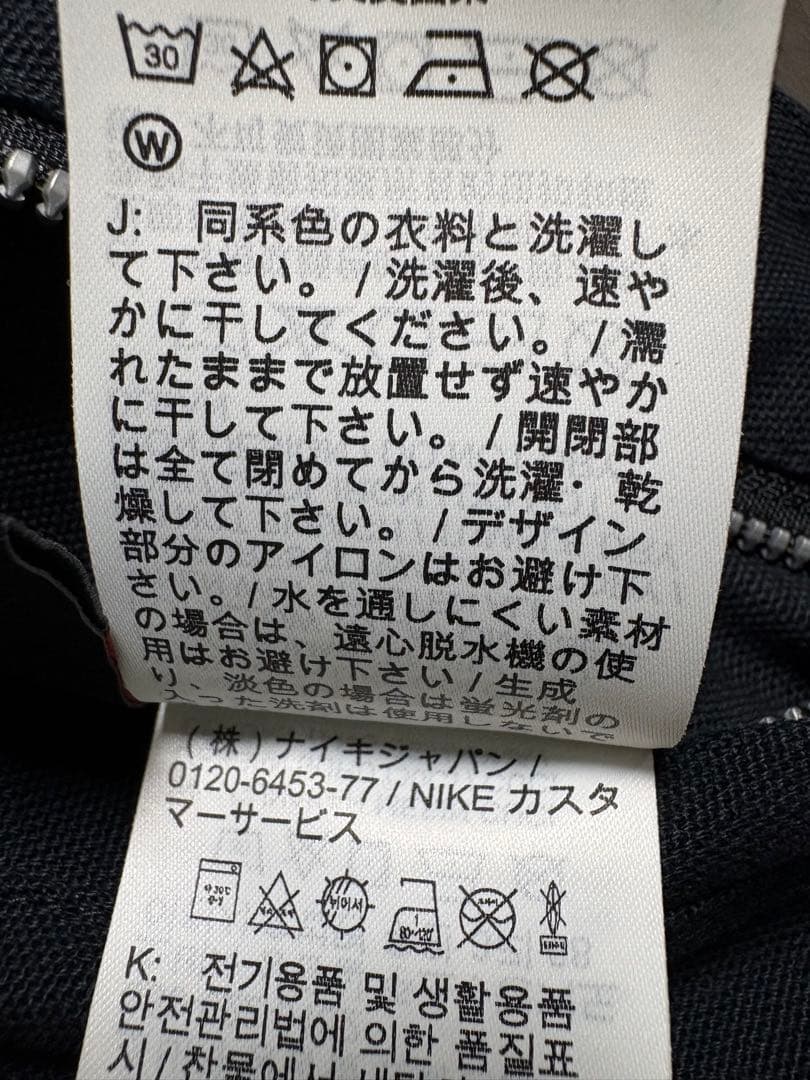 30
W
J: 同系色の衣料と洗濯し
て下さい。/ 洗濯後、速や
かに干してください。/ 濡
れたままで放置せず速やか
に干して下さい。/ 開閉部
は全て閉めてから洗濯・乾
燥して下さい。/ デザイン
部分のアイロンはお避け下
さい。/ 水を通しにくい素材
の場合は、遠心脱水機の使
用はお避け下さい / 生成
り、淡色の場合は蛍光剤の
入った洗剤は使用しないで
(株) ナイキジャパン /
0120-6453-77 / NIKE カスタ
マーサービス
K: 전기용품 및 생활용품
안전관리법에 의한 품질표
시 / 찬물에서